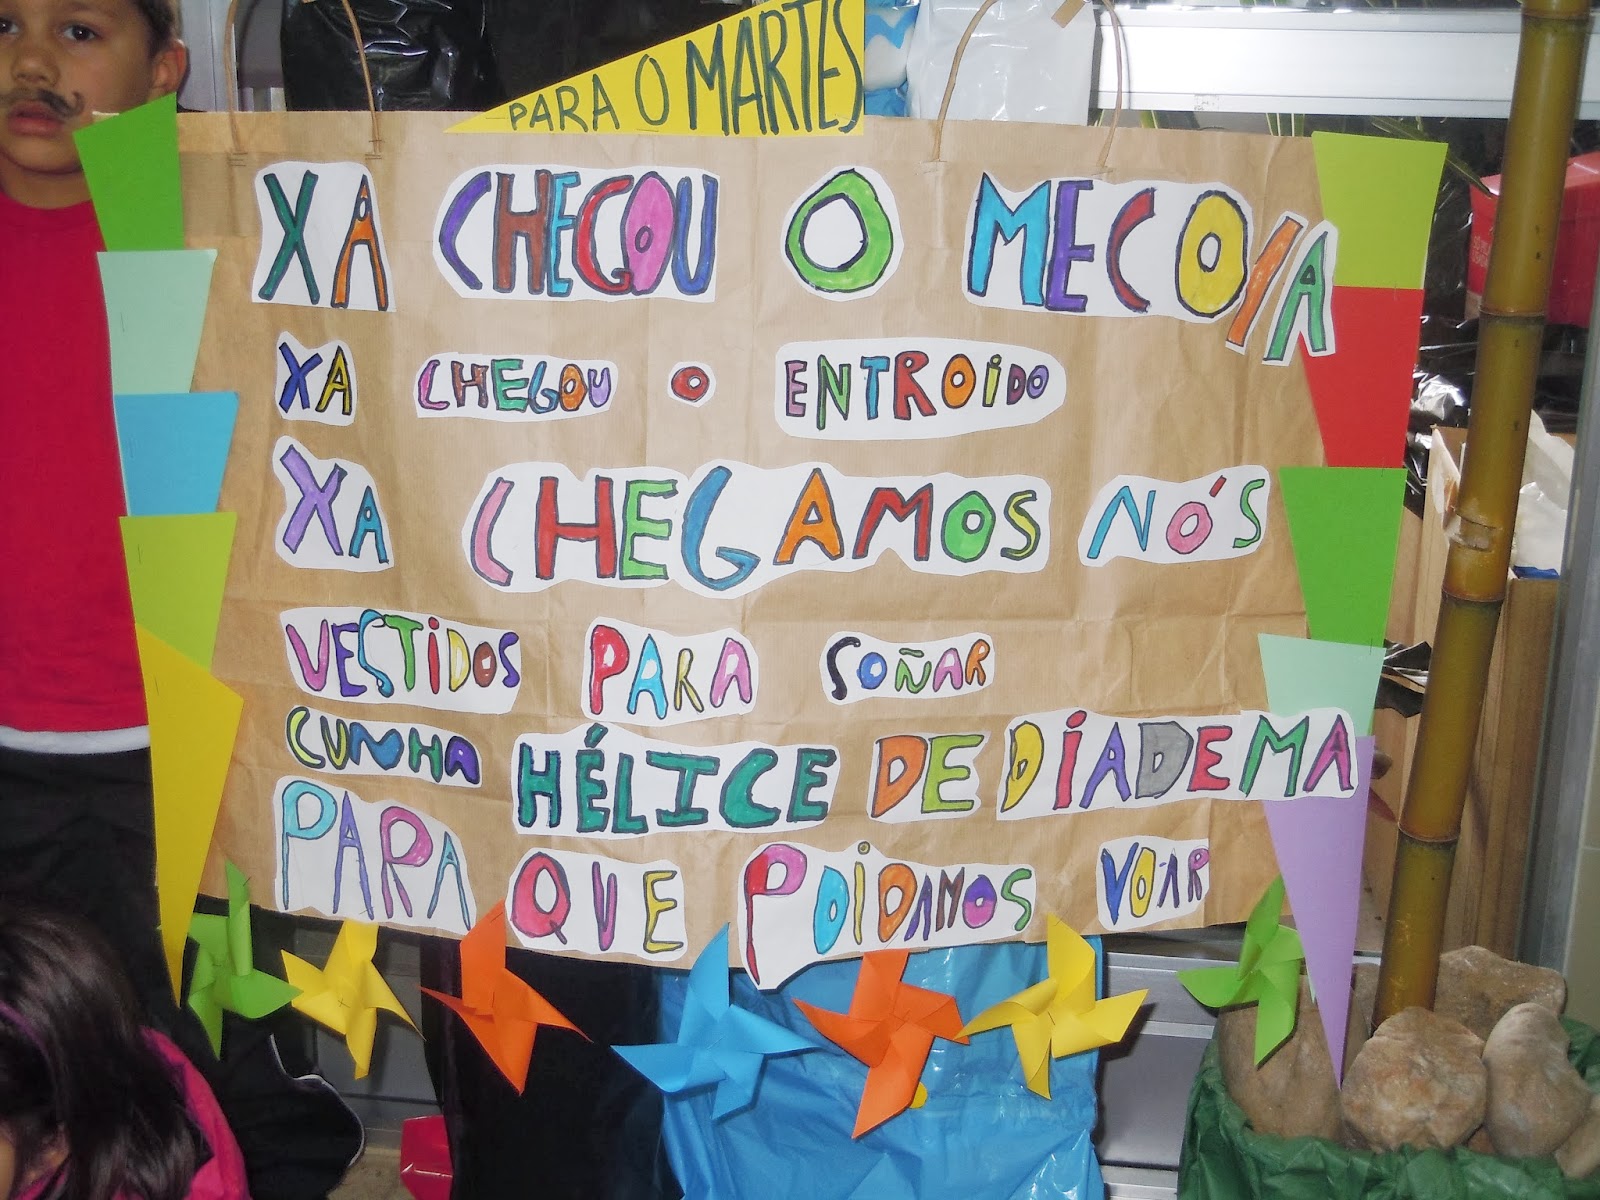 PARA O MARTES
XA CHEGOU O MECOIA
XA CHEGOU O ENTROIDO
XA CHEGAMOS NÓS
VESTIDOS PARA SOÑAR
CUNHA HÉLICE DE DIADEMA
PARA QUE POIDAMOS VOAR